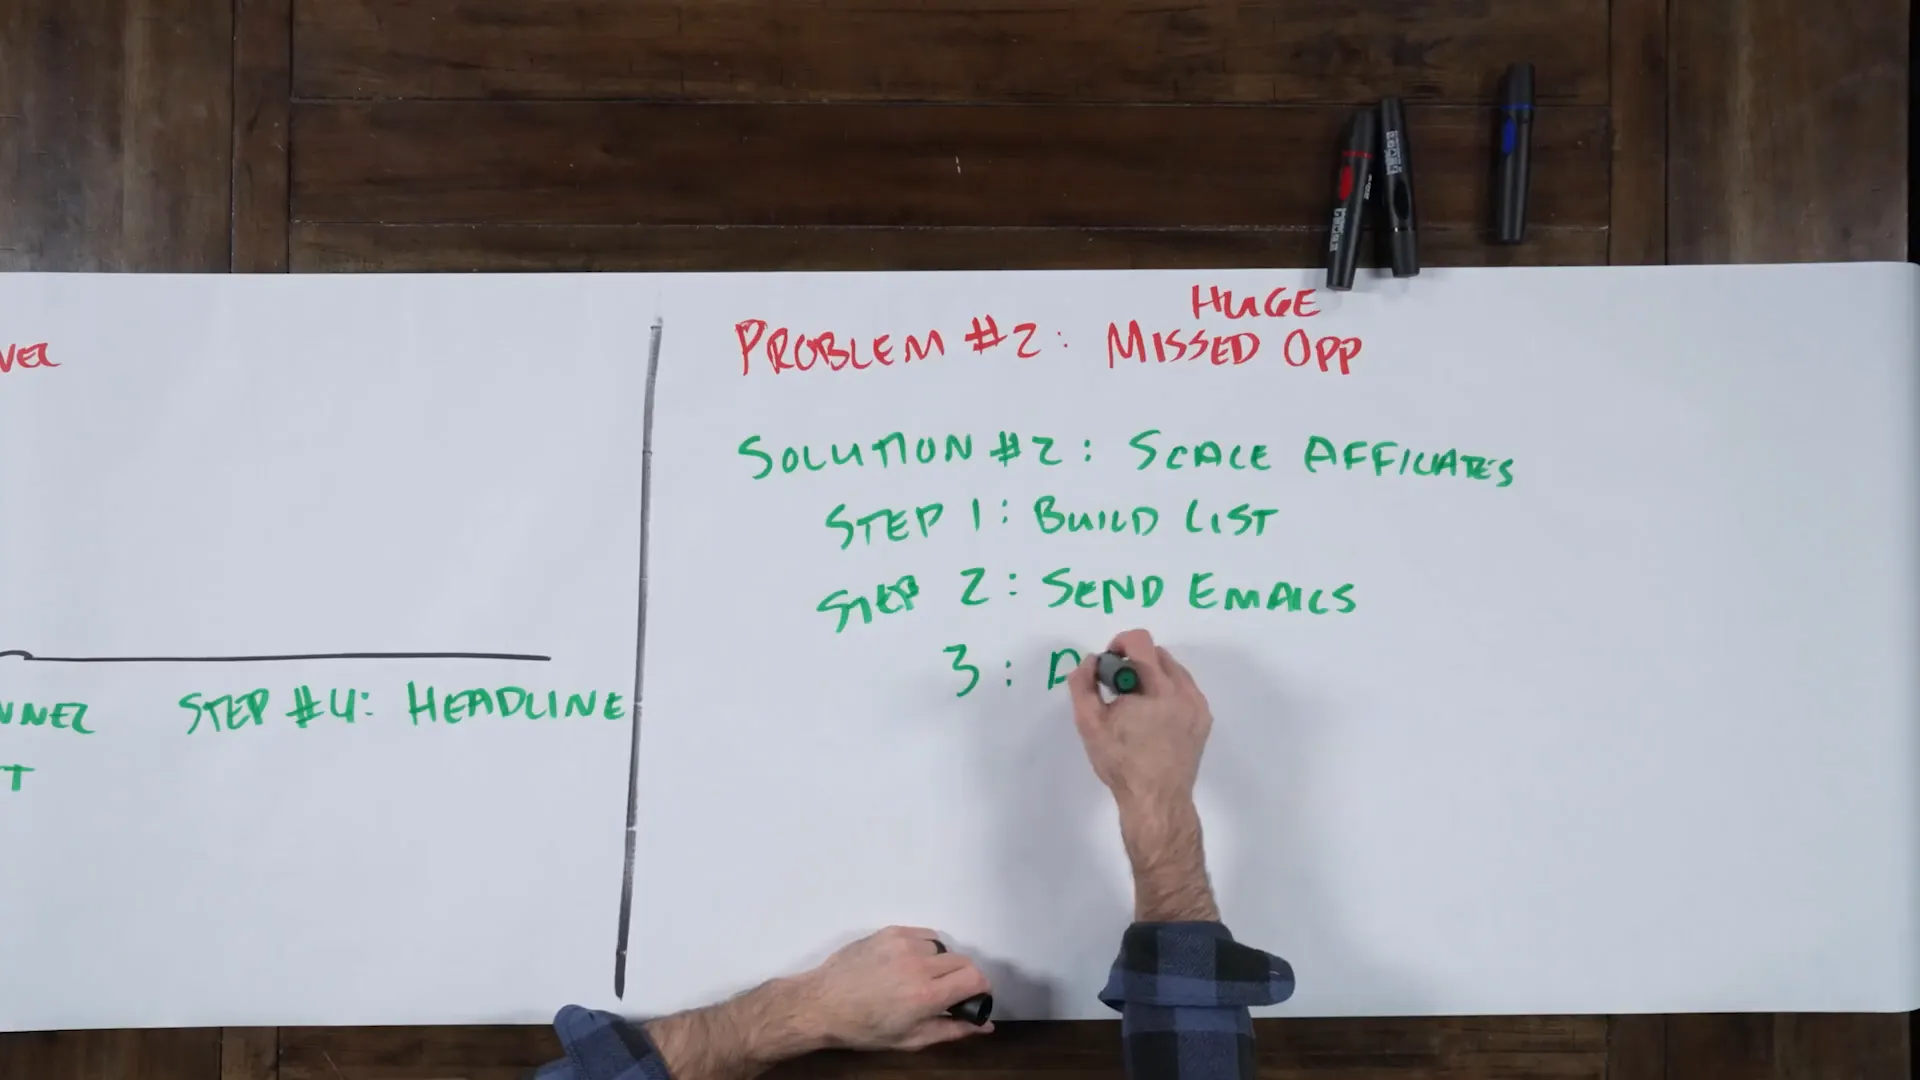 HUGE
PROBLEM #2: MISSED OPP
SOLUTION #2: SCALE AFFILIATES
STEP 1: BUILD LIST
STEP 2: SEND EMAILS
3:
STEP #4: HEADLINE